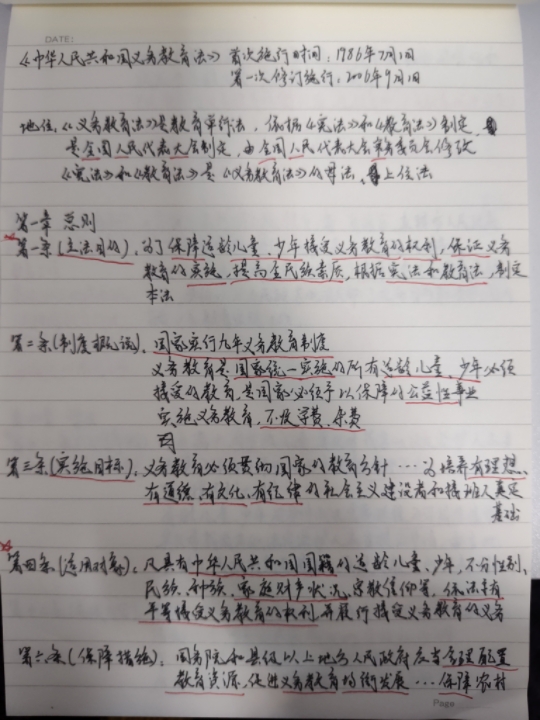 DATE:
《中华人民共和国义务教育法》 首次施行时间：1986年7月1日
第一次修订施行：2006年9月1日
地位：《义务教育法》是教育单行法，依据《宪法》和《教育法》制定，
是全国人民代表大会制定，由全国人民代表大会常务委员会修改
《宪法》和《教育法》是《义务教育法》的母法，上位法
第一章 总则
第一条(立法目的)、为了保障适龄儿童、少年接受义务教育的权利，保证义务
教育的实施，提高全民族素质，根据宪法和教育法，制定
本法
第二条(制度概说)、国家实行九年义务教育制度
义务教育是国家统一实施的所有适龄儿童、少年必须
接受的教育，是国家必须予以保障的公益性事业
实施义务教育，不收学费、杂费
第三条(实施目标)、义务教育必须贯彻国家的教育方针…为培养有理想、
有道德、有文化、有纪律的社会主义建设者和接班人奠定
基础
第四条(适用对象)、凡具有中华人民共和国国籍的适龄儿童、少年，不分性别、
民族、种族、家庭财产状况、宗教信仰等，依法享有
平等接受义务教育的权利，并履行接受义务教育的义务
第六条(保障措施)、国务院和县级以上地方人民政府应当合理配置
教育资源，促进义务教育均衡发展…保障农村
Page